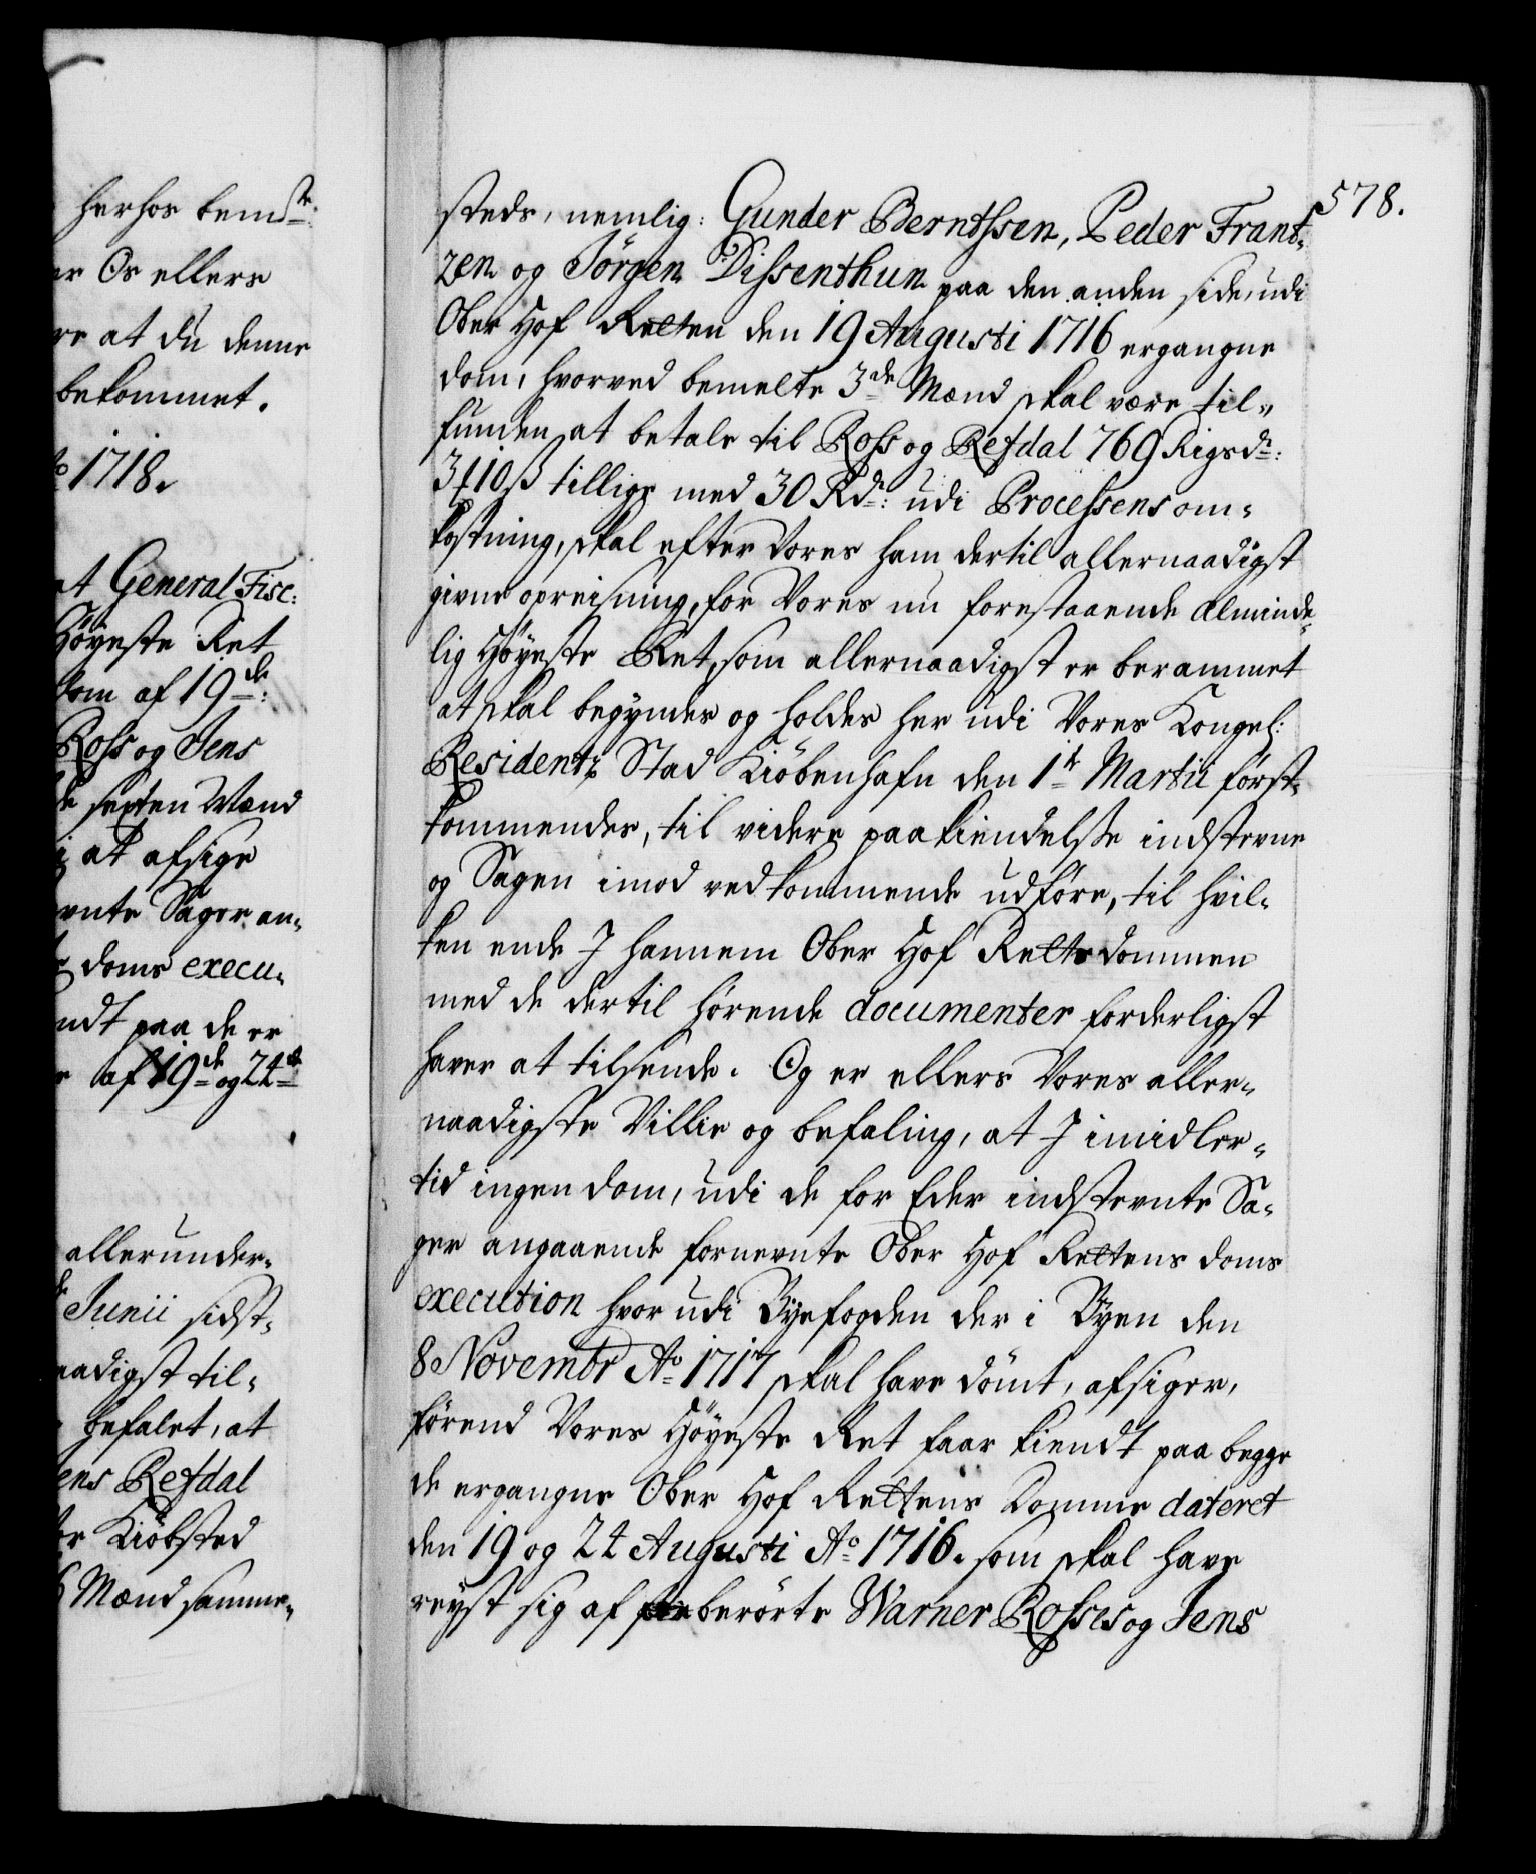 herhos bemte:
er Os ellers
re at du denne
bekommet.
o 1718.
at General Fisc:
Høyeste Ret
dom af 19de:
Ross og Jens
de sexten Mænd
at afsige
evnte Sager an-
doms execu-
ndt paa de er
af 19de og 24de
allerunder-
Junii sidst-
naadigst til-
befalet, at
ens Refdal
Kiöbsted
6 Mænd samme-
578.
steds, nemlig: Gunder Berntssen, Peder Frant-
zen og Jörgen Dissenthun paa den anden side, udi
Ober Hof Retten den 19 Augusti 1716 ergangne
dom, hvorved bemelte 3de Mænd skal være til-
funden at betale til Ross og Refdal 769 Rigsdr:
3 ʄ 10 ß tillige med 30 Rdr: udi Processens om-
kostning, skal efter Vores ham dertil allernaadigst
givne opreisning, for Vores nu forestaaende alminde-
lig Höyeste Ret, som allernaadigst er berammet
at skal begyndes og holdes her udi Vores Kongel:
Residentz Stad Kiöbenhafn den 1te Martii först-
kommendes, til videre paakiendelse indstevne
og Sagen imod vedkommende udföre, til hvil-
ken ende I hannem Ober Hof Retts dommen
med de dertil hörende documenter forderligst
haver at tilsende. Og er ellers Vores aller-
naadigste Villie og befaling, at I imidler-
tid ingen dom, udi de for Eder indstevnte Sa-
ger angaaende fornevnte Ober Hof Rettens doms
execution hvor udi Byefogden der i Byen den
8 Novembr Ao 1717 skal have dömt, afsiger,
förend Vores Höyeste Ret faar kiendt paa begge
de ergangne Ober Hof Rettens Domme dateret
den 19 og 24 Augusti Ao 1716. som skal have
reyst sig af berörte Warner Rosses og Jens